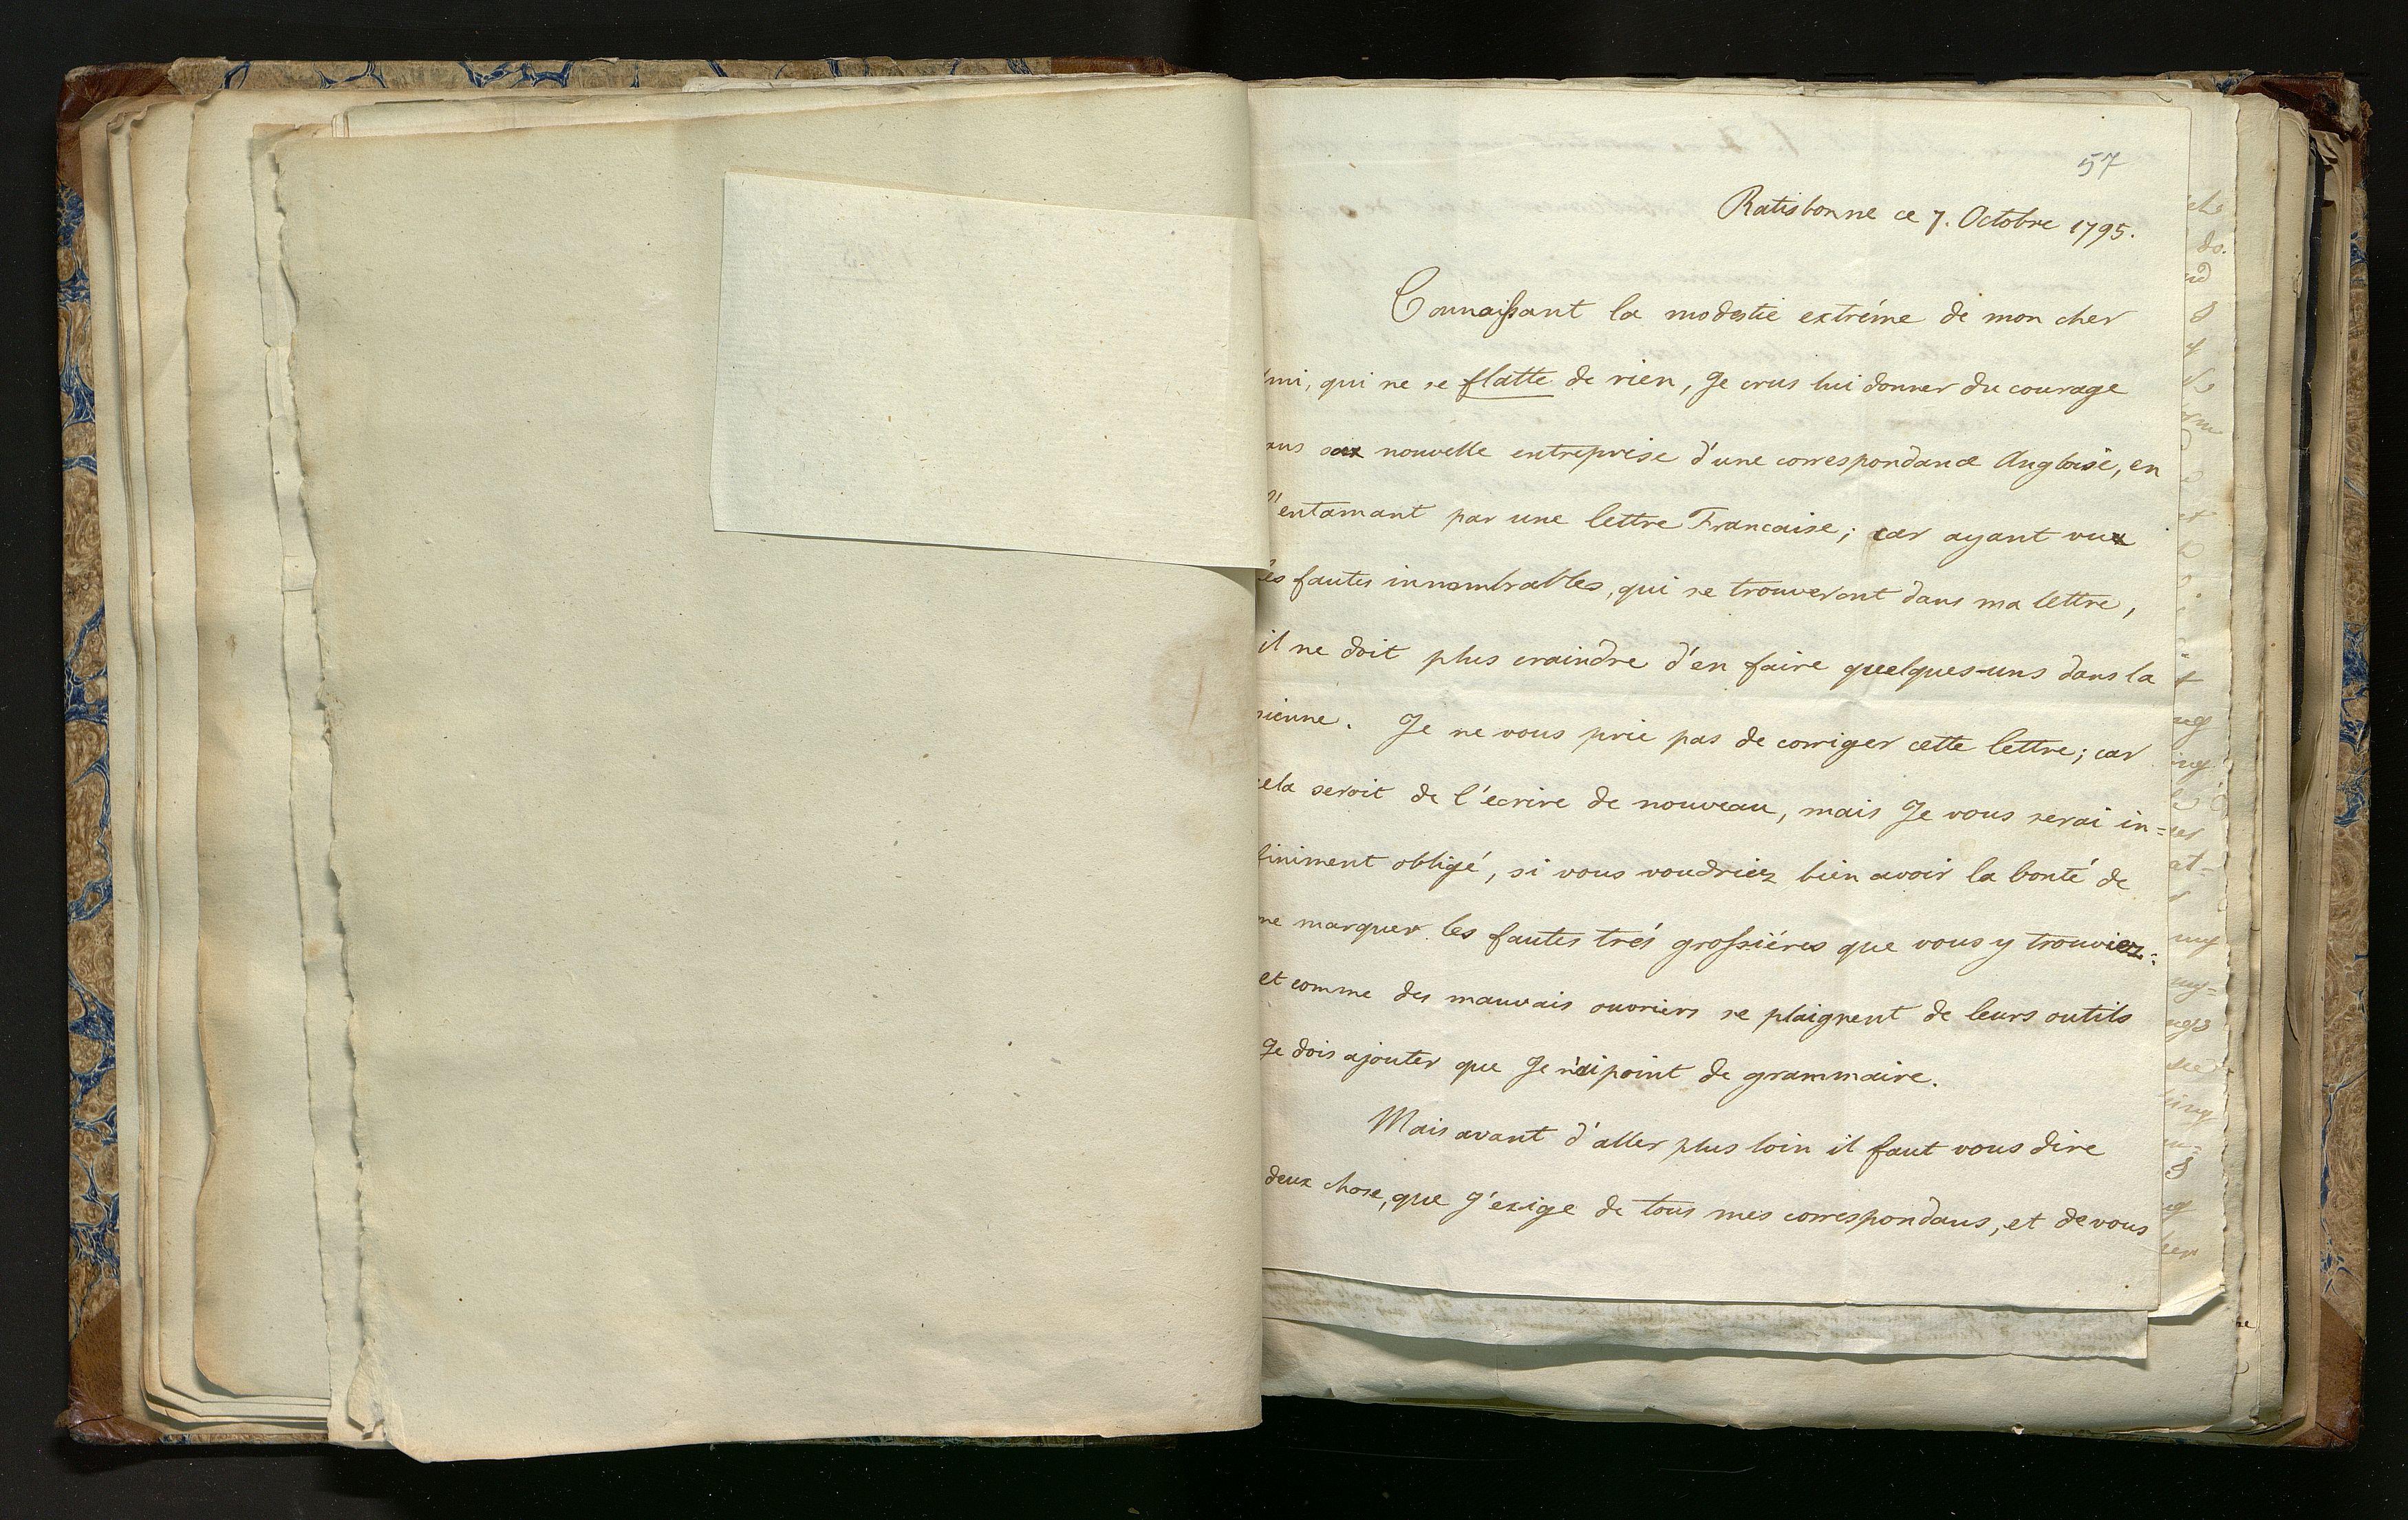 57
Ratisbonne ce 7. Octobre 1795.
Connaissant la modestie extréme de mon cher
mi, qui ne se flatte de rien, Je crus lui donner du courage
ans sa nouvelle entreprise d'une correspondance Angloise, en
l'entamant par une lettre Francaise; car ayant vu
les fautes innombrables, qui se trouveront dans ma lettre,
il ne doit plus craindre d'en faire quelques-uns dans la
sienne. Je ne vous prie pas de corriger cette lettre; car
cela seroit de l'ecrire de nouveau, mais Je vous serai in=
finiment obligé, si vous voudriez bien avoir la bonté de
me marquer les fautes trés grossiéres que vous y trouviez:
et comme des mauvais ouvriers se plaignent de leurs outils
Je dois ajouter que Je n'ai point de grammaire.
Mais avant d'aller plus loin il faut vous dire
deux chose, que J'exige de tous mes correspondans, et de vous